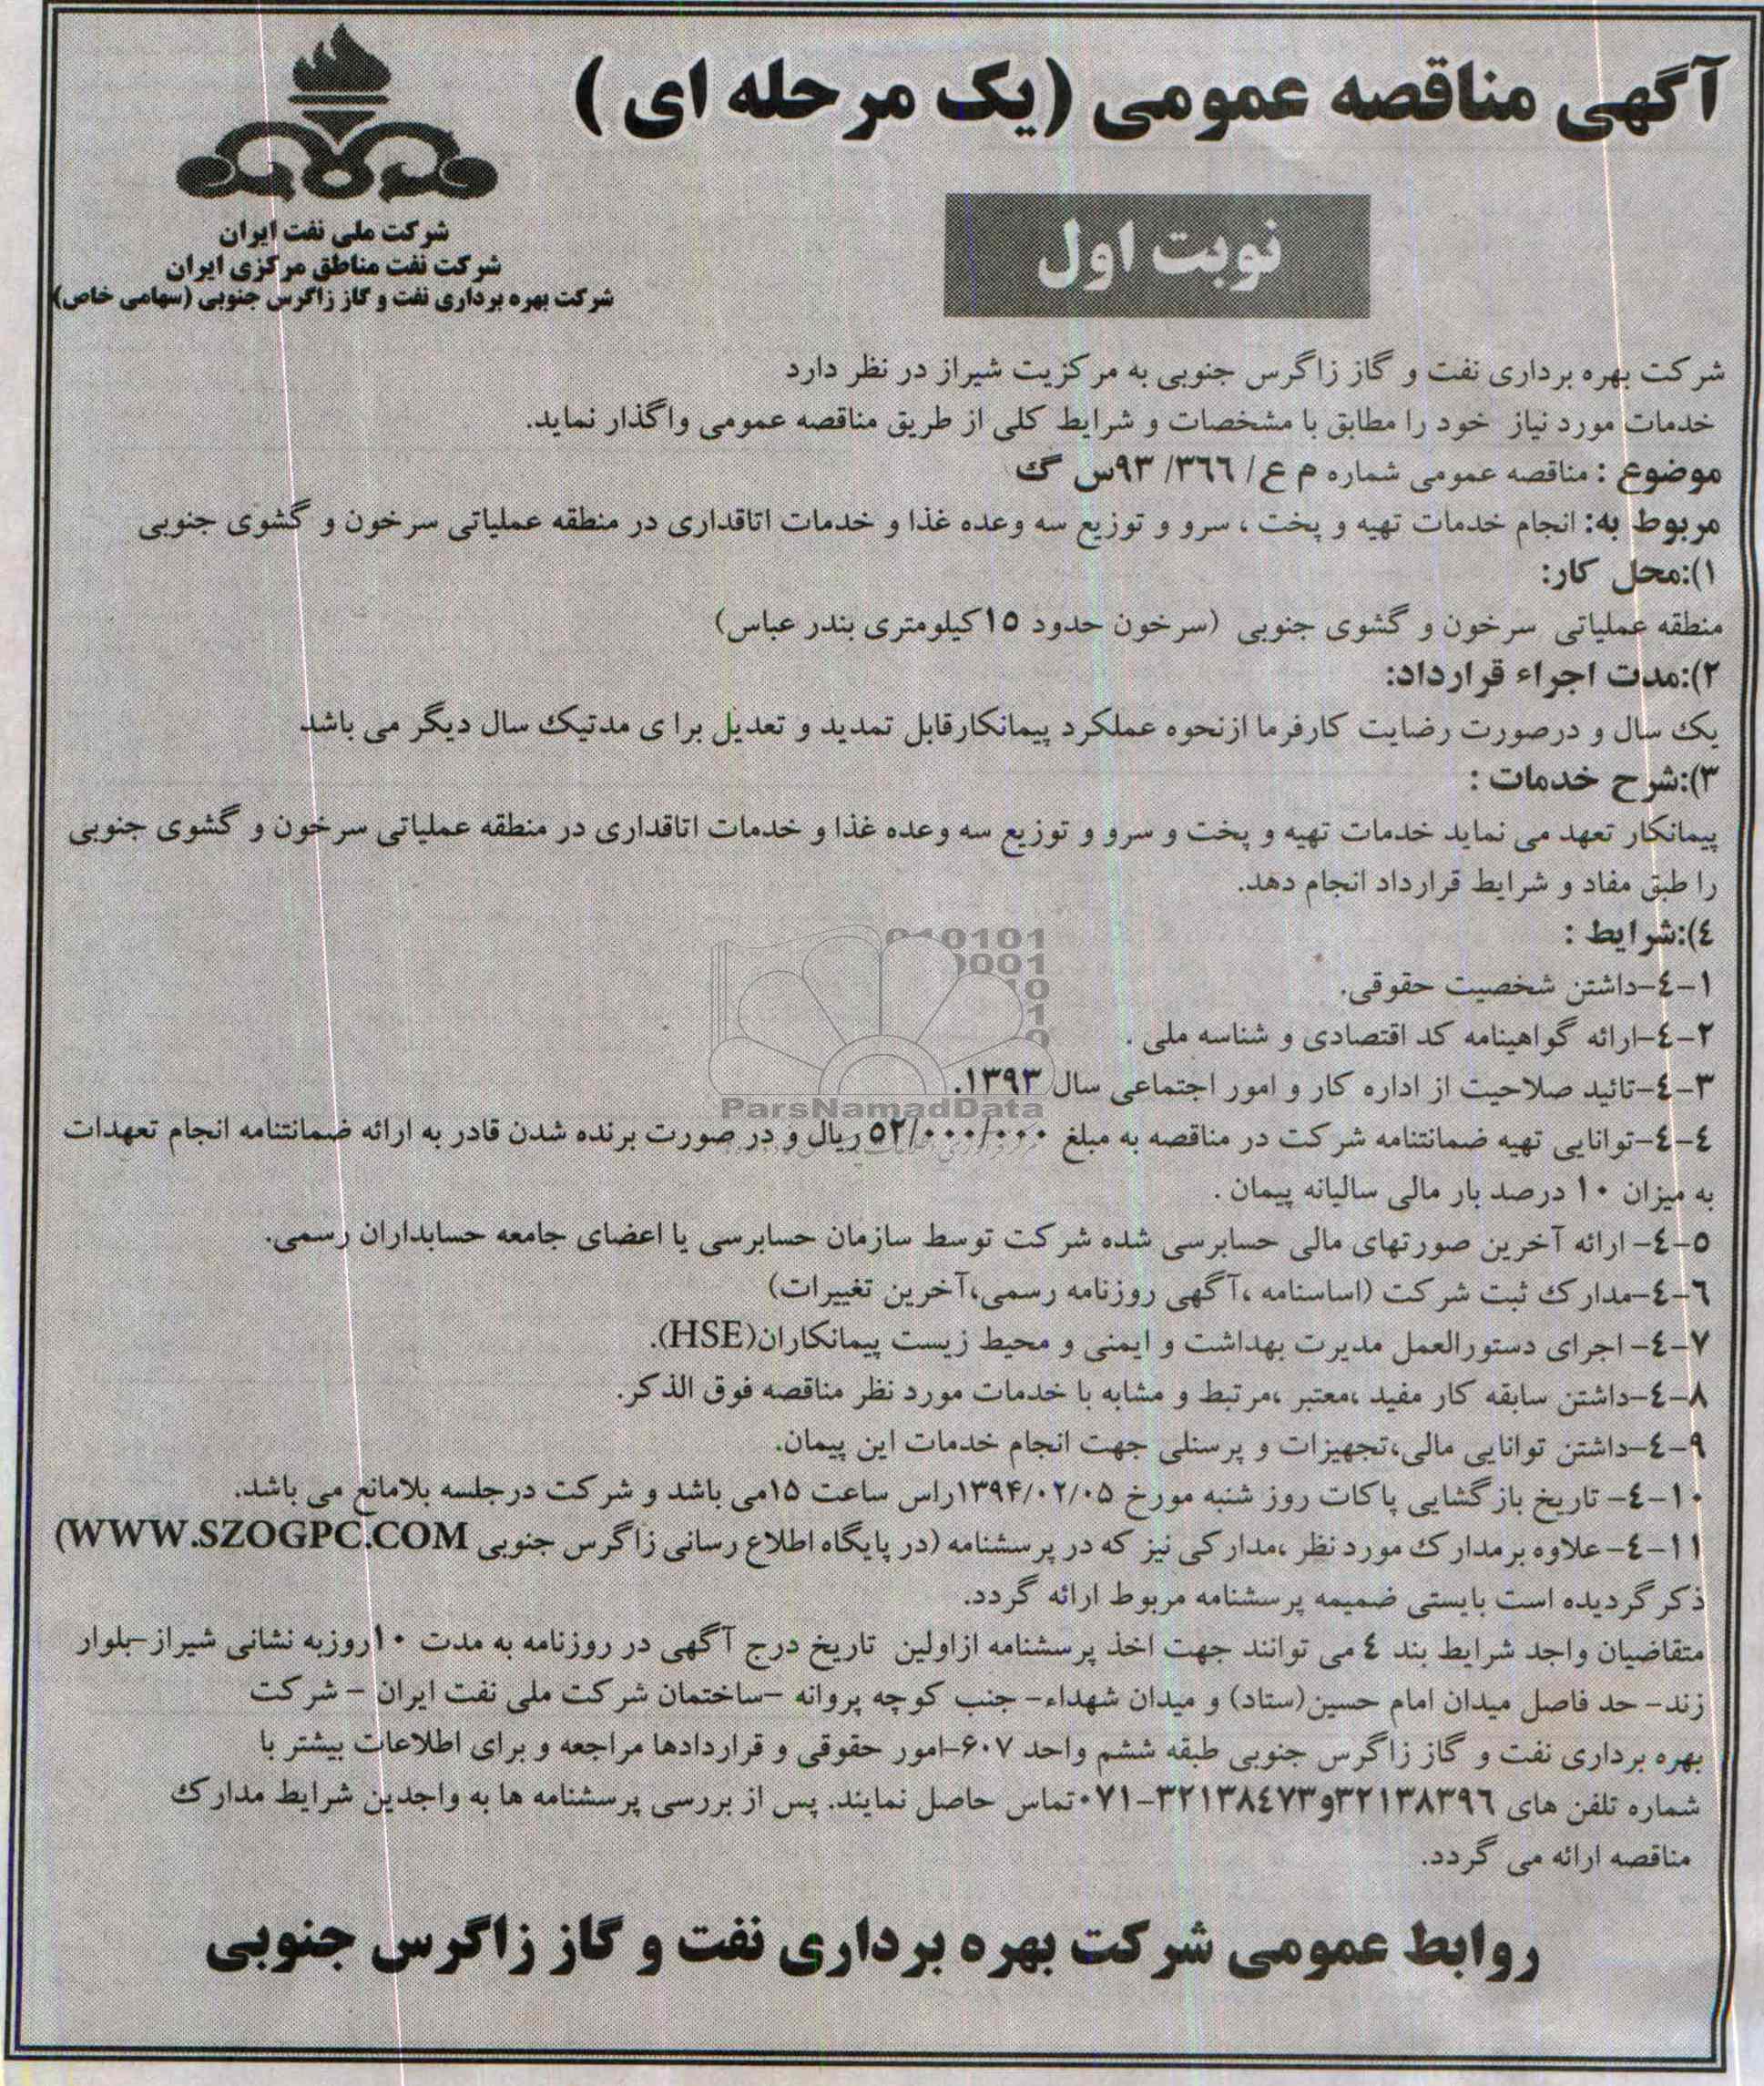 آگهی مناقصه عمومی (یک مرحله ای )
شرکت ملی نفت ایران
شرکت نفت مناطق مرکزی ایران
شرکت بهره برداری نفت و گاز زاگرس جنوبی (سهامی خاص)
نوبت اول
شرکت بهره برداری نفت و گاز زاگرس جنوبی به مرکزیت شیراز در نظر دارد
خدمات مورد نیاز خود را مطابق با مشخصات و شرایط کلی از طریق مناقصه عمومی واگذار نماید.
موضوع : مناقصه عمومی شماره م ع/ ۳۶۶/ ۹۳س گ
مربوط به: انجام خدمات تهیه و پخت ، سرو و توزیع سه وعده غذا و خدمات اتاقداری در منطقه عملیاتی سرخون و گشوی جنوبی
۱):محل کار:
منطقه عملیاتی سرخون و گشوی جنوبی (سرخون حدود ۱۵کیلومتری بندر عباس)
۲):مدت اجراء قرارداد:
یک سال و درصورت رضایت کارفرما ازنحوه عملکرد پیمانکارقابل تمدید و تعدیل برا ی مدتیک سال دیگر می باشد
۳):شرح خدمات :
پیمانکار تعهد می نماید خدمات تهیه و پخت و سرو و توزیع سه وعده غذا و خدمات اتاقداری در منطقه عملیاتی سرخون و گشوی جنوبی
را طبق مفاد و شرایط قرارداد انجام دهد.
۴):شرایط :
۱-۴-داشتن شخصیت حقوقی.
۲-۴-ارائه گواهینامه کد اقتصادی و شناسه ملی .
۳-۴-تائید صلاحیت از اداره کار و امور اجتماعی سال ۱۳۹۳.
ParsNamadData
۴-۴-توانایی تهیه ضمانتنامه شرکت در مناقصه به مبلغ ۵۲/۰۰۰/۰۰۰ریال و در صورت برنده شدن قادر به ارائه ضمانتنامه انجام تعهدات
به میزان ۱۰ درصد بار مالی سالیانه پیمان .
۵-۴- ارائه آخرین صورتهای مالی حسابرسی شده شرکت توسط سازمان حسابرسی یا اعضای جامعه حسابداران رسمی.
۶-۴-مدارک ثبت شرکت (اساسنامه ،آگهی روزنامه رسمی،آخرین تغییرات)
۷-۴- اجرای دستورالعمل مدیرت بهداشت و ایمنی و محیط زیست پیمانکاران(HSE).
۸-۴-داشتن سابقه کار مفید ،معتبر ،مرتبط و مشابه با خدمات مورد نظر مناقصه فوق الذکر.
۹-۴-داشتن توانایی مالی،تجهیزات و پرسنلی جهت انجام خدمات این پیمان.
۱۰-۴- تاریخ بازگشایی پاکات روز شنبه مورخ ۱۳۹۴/۰۲/۰۵راس ساعت ۱۵می باشد و شرکت درجلسه بلامانع می باشد.
۱۱-۴-علاوه برمدارک مورد نظر ،مدارکی نیز که در پرسشنامه (در پایگاه اطلاع رسانی زاگرس جنوبی WWW.SZOGPC.COM)
ذکر گردیده است بایستی ضمیمه پرسشنامه مربوط ارائه گردد.
متقاضیان واجد شرایط بند ۴ می توانند جهت اخذ پرسشنامه ازاولین تاریخ درج آگهی در روزنامه به مدت ۱۰روزبه نشانی شیراز-بلوار
زند- حد فاصل میدان امام حسین(ستاد) و میدان شهداء- جنب کوچه پروانه -ساختمان شرکت ملی نفت ایران - شرکت
بهره برداری نفت و گاز زاگرس جنوبی طبقه ششم واحد ۶۰۷-امور حقوقی و قراردادها مراجعه و برای اطلاعات بیشتر با
شماره تلفن های ۳۲۱۳۸۳۹۶و۳۲۱۳۸۴۷۳-۰۷۱تماس حاصل نمایند. پس از بررسی پرسشنامه ها به واجدین شرایط مدارک
مناقصه ارائه می گردد.
روابط عمومی شرکت بهره برداری نفت و گاز زاگرس جنوبی